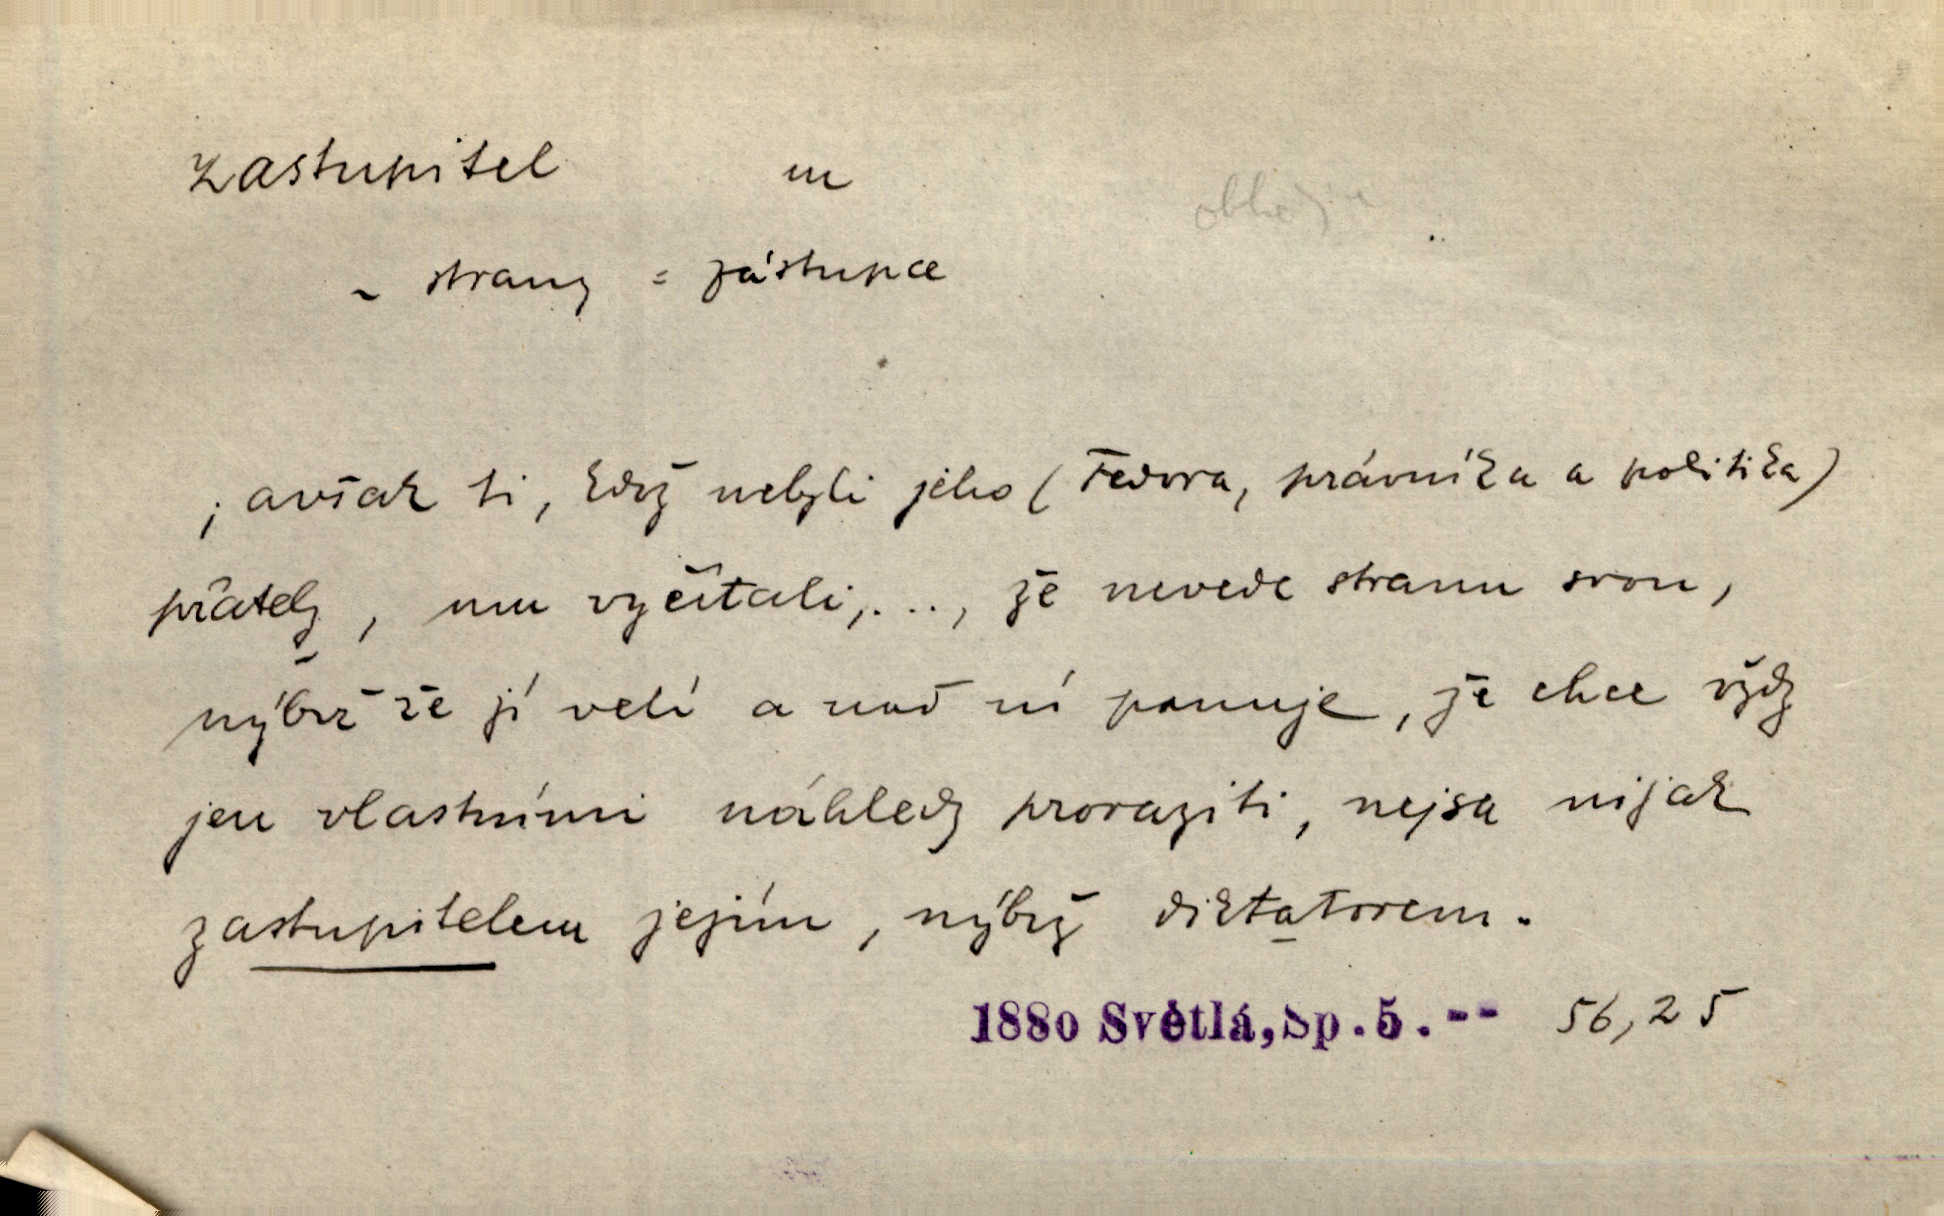 zastupitel m
~ strany = zástupce
; avšak ti, kdož nebyli jeho (Fedora, právníka a politika)
přátely, mu vyčítali,..., že nevede stranu svou,
nýbrž že jí velí a nad ní panuje, že chce vždy
jen vlastními náhledy proraziti, nejsa nijak
zastupitelem jejím, nýbrž diktatorem.
1880 Světlá, Sp.5.-- 56,25